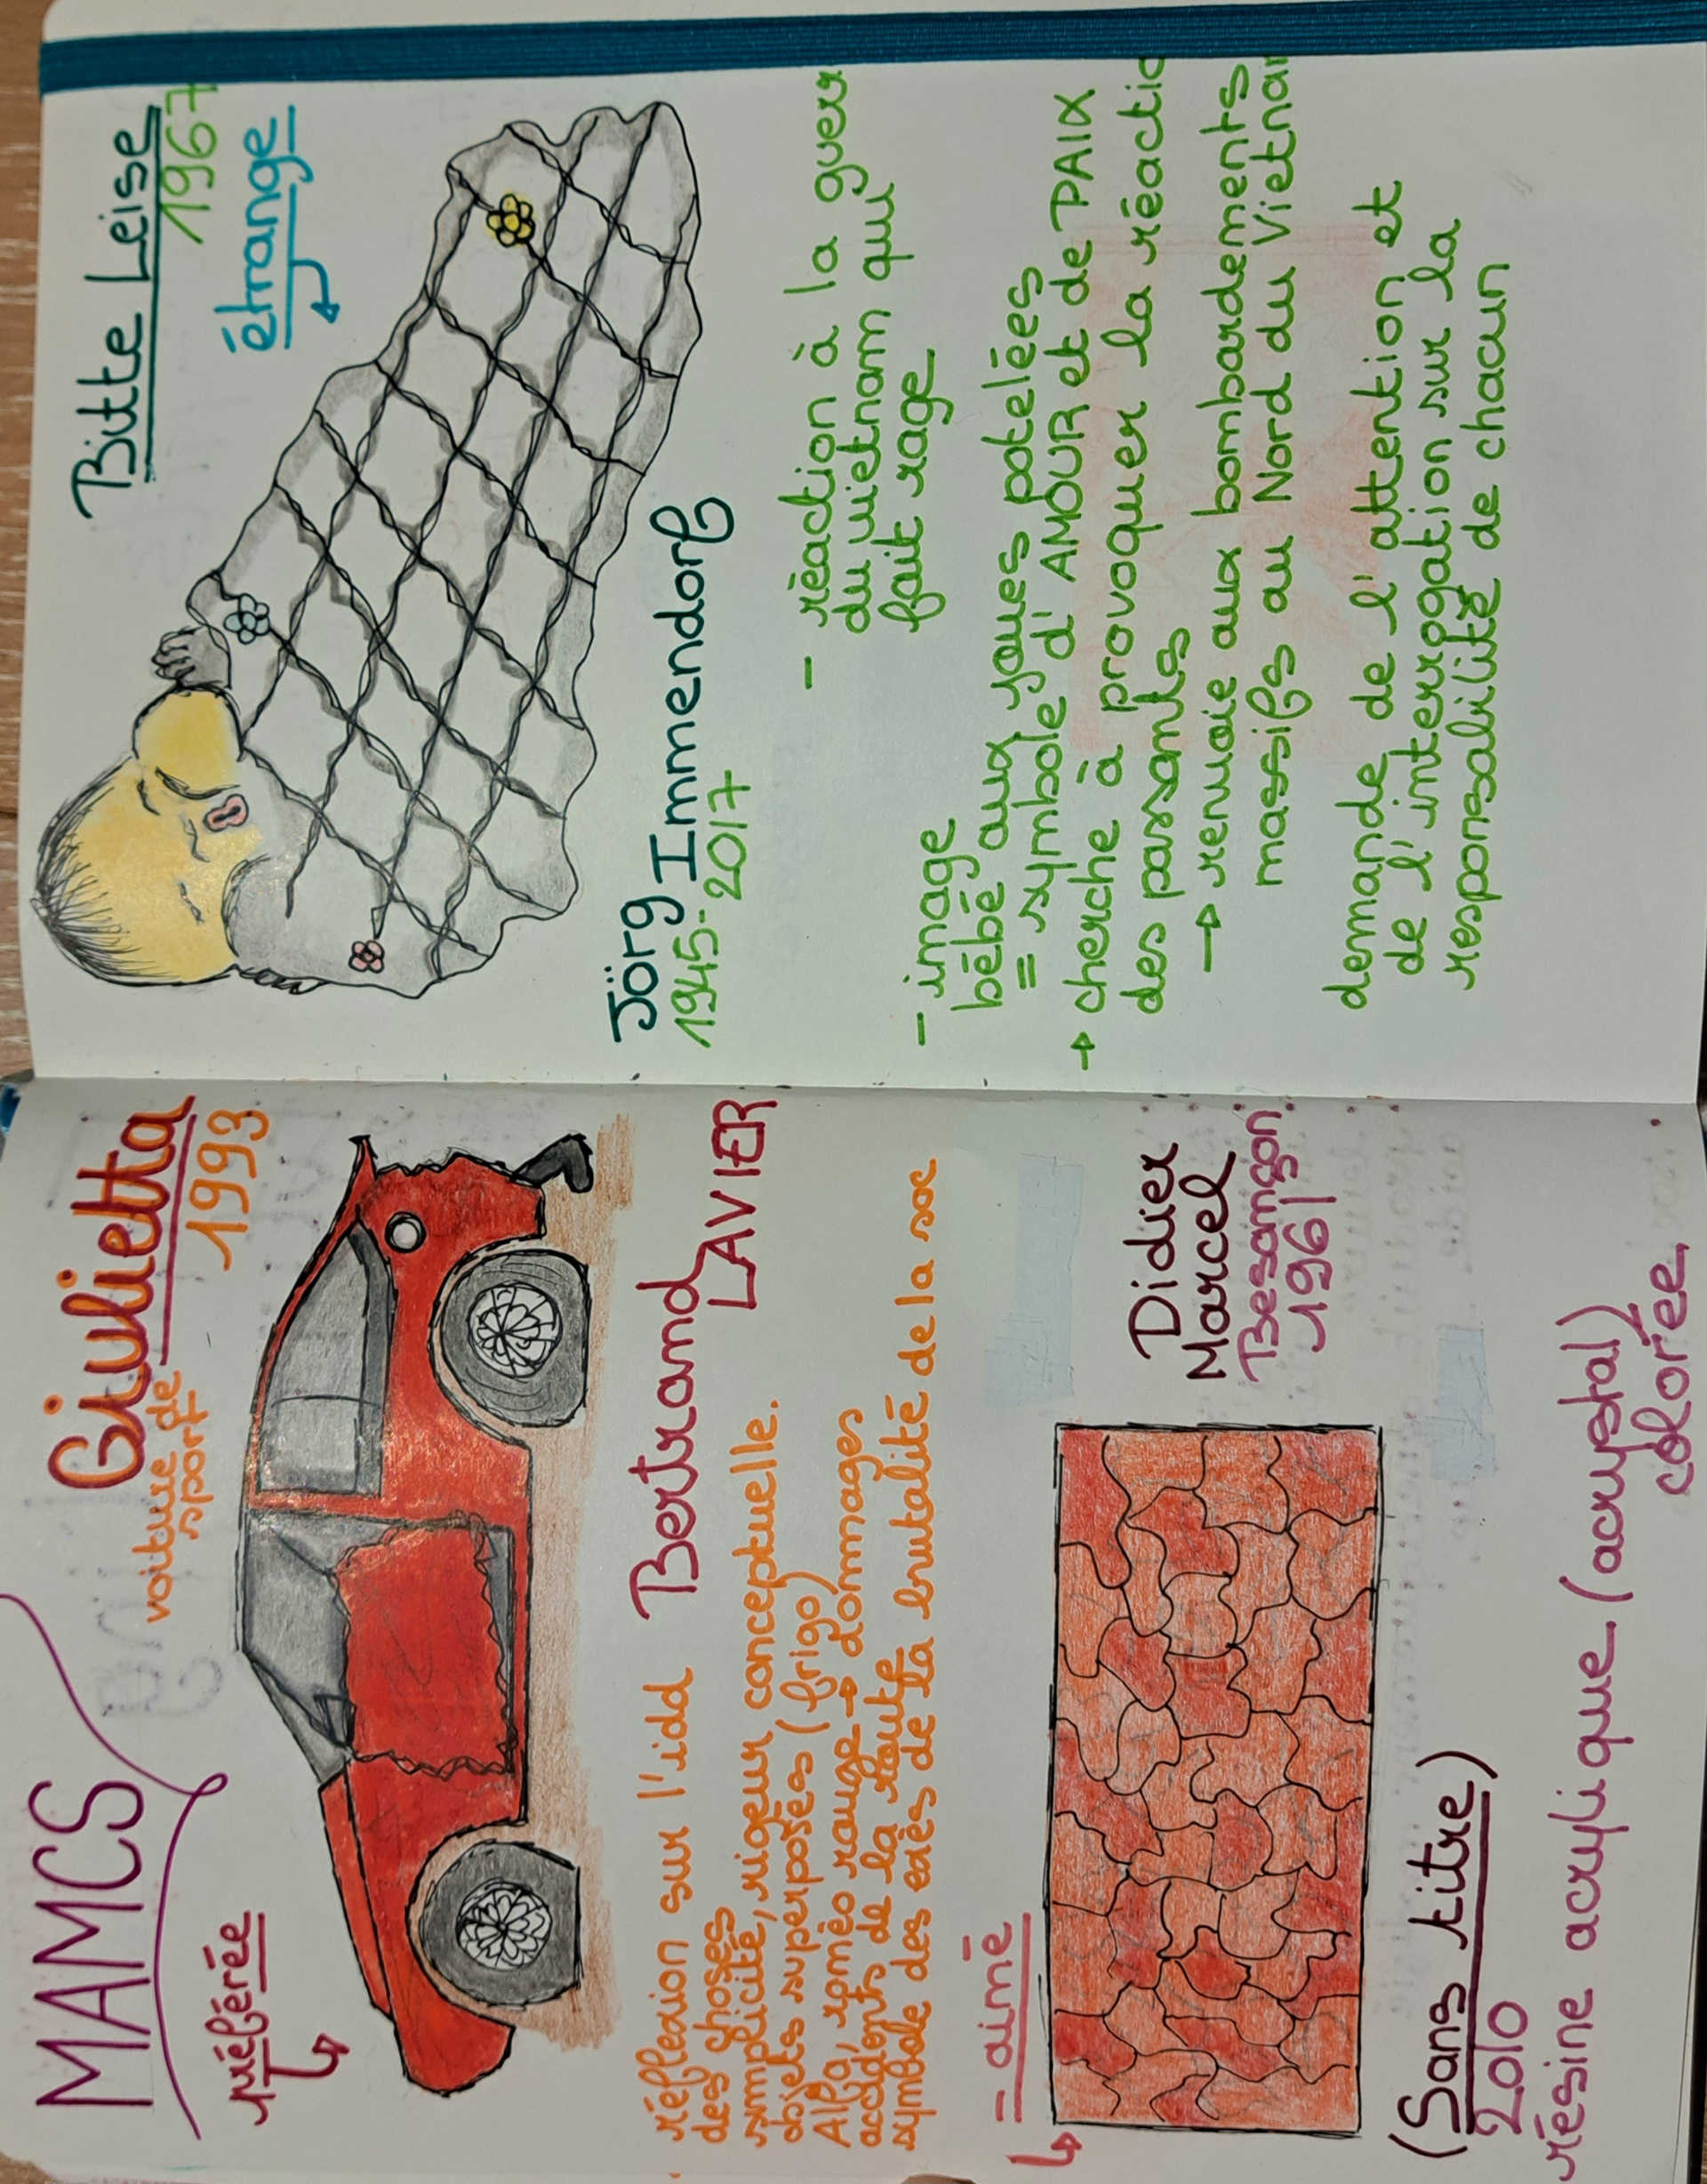 MAMCS
Giulietta
1993
voiture de
sport
préférée
Bertrand
LAVIER
réflexion sur l'idd
des choses
simplicité, rigeur conceptuelle.
objets superposés (frigo)
Alfa roméo rouge → domages
accidents de la route
symbole des exès de la brutalité de la soc
- aimé
Didier
Marcel
Besançon
1961
(Sans titre)
2010
résine acrylique (acrystal)
colorée
Bitte Leise
1967
étrange
Jörg Immendorf
1945-2017
- réaction à la guerr
du vietnam qui
fait rage
- image
bébé aux joues potelées
= symbole d'AMOUR et de PAIX
→ cherche à provoquer la réactio
des passants
→ renvoie aux bombardements
massifs au Nord du Vietnam
demande de l'attention et
de l'interrogation sur la
responsalilité de chacun